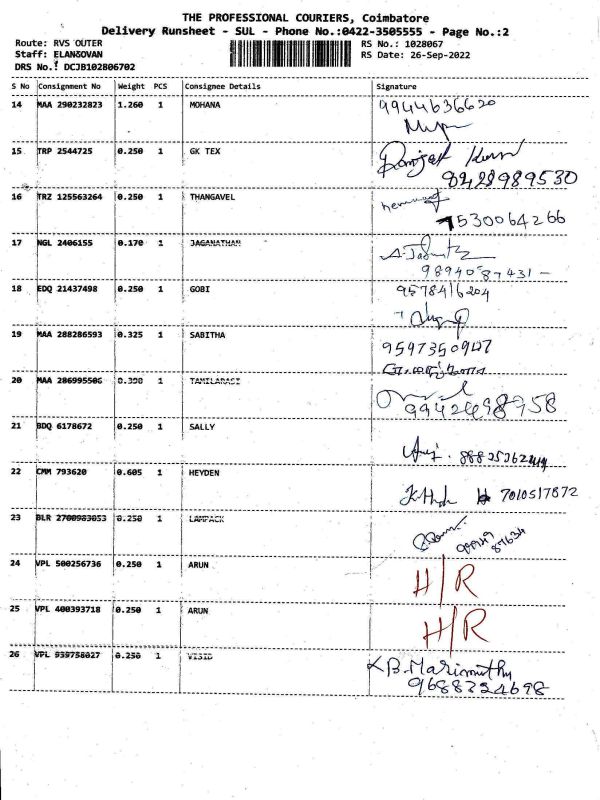 THE PROFESSIONAL COURIERS, Coimbatore
Delivery Runsheet - SUL - Phone No.:0422-3505555 - Page No.:2
Route: RVS OUTER RS No.: 1028067
Staff: ELANGOVAN RS Date: 26-Sep-2022
DRS No.: DCJB102806702
S No Consignment No Weight PCS Consignee Details Signature
14 MAA 290232823 1.260 1 MOHANA 9944636620
15 TRP 2544725 0.250 1 GK TEX
8428989530
16 TRZ 125563264 0.250 1 THANGAVEL
7530064266
17 NGL 2406155 0.170 1 JAGANATHAN
9894087431
18 EDQ 21437498 0.250 1 GOBI 9578416204
19 MAA 288286593 0.325 1 SABITHA
20 MAA 286995506 0.390 1 TAMILARASI
21 BDQ 6178672 0.250 1 SALLY
22 CMM 793620 0.605 1 HEYDEN
7010517872
23 BLR 2700983053 0.250 1 LAMPACK
24 VPL 500256736 0.250 1 ARUN H/R
25 VPL 400393718 0.250 1 ARUN H/R
26 VPL 939758027 0.250 1 VISID K.B.Marimuthy
9688324698